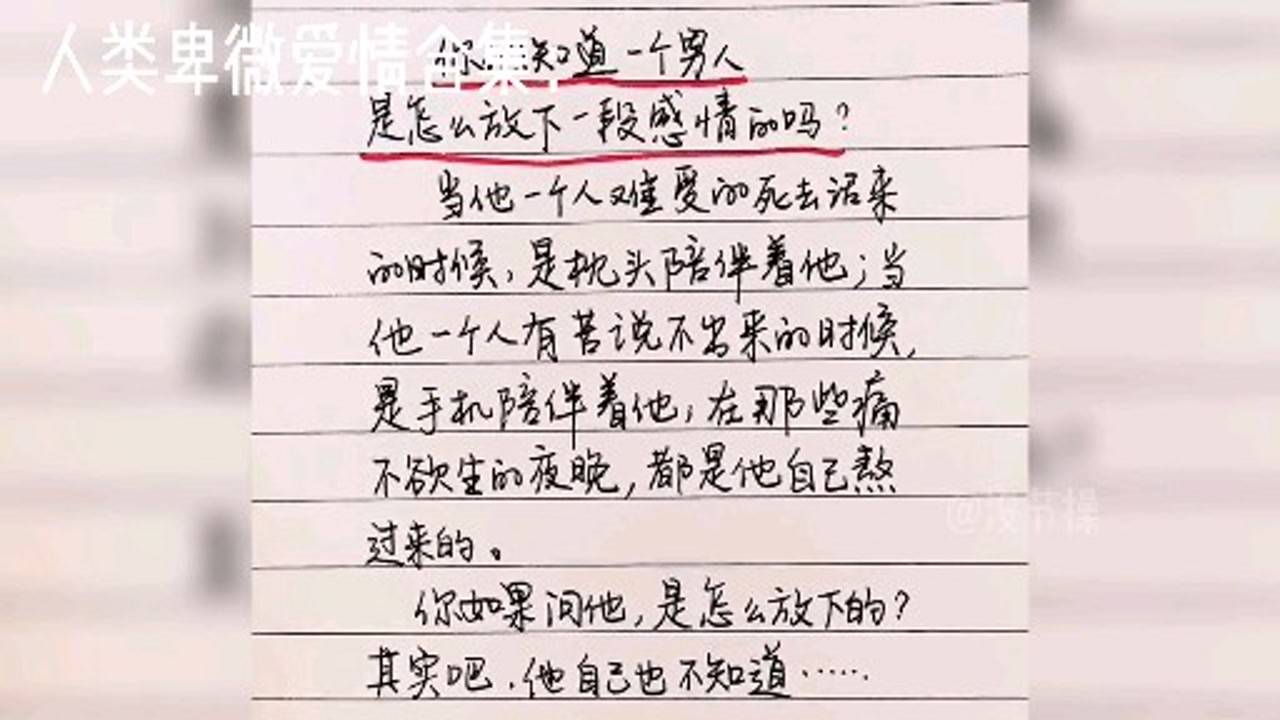 人类卑微爱情合集：
你知道一个男人
是怎么放下一段感情的吗？
当他一个人难受的死去活来
的时候，是枕头陪伴着他；当
他一个人有苦说不出来的时候，
是手机陪伴着他，在那些痛
不欲生的夜晚，都是他自己熬
过来的。
你如果问他，是怎么放下的？
其实吧，他自己也不知道······
@没节操